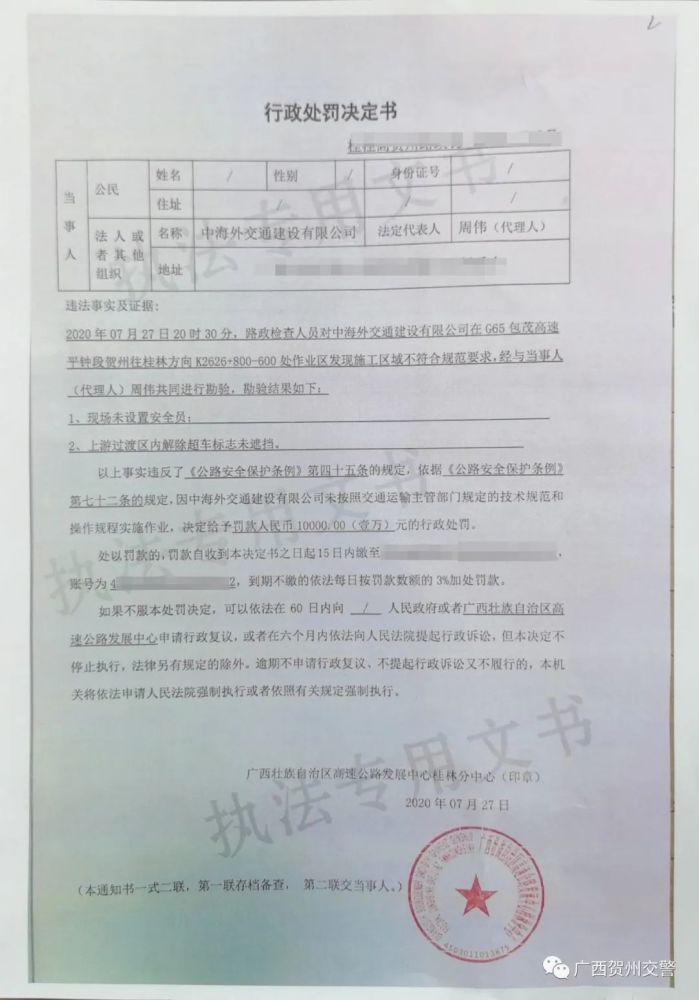 行政处罚决定书
当事人
公民
姓名 / 性别 / 身份证号 /
住址 / / /
法人或者其他组织
名称 中海外交通建设有限公司 法定代表人 周伟（代理人）
地址
违法事实及证据:
2020年07月27日20时30分，路政检查人员对中海外交通建设有限公司在G65包茂高速
平钟段贺州往桂林方向K2626+800-600处作业区发现施工区域不符合规范要求,经与当事人
（代理人）周伟共同进行勘验，勘验结果如下：
1、现场未设置安全员；
2、上游过渡区内解除超车标志未遮挡。
以上事实违反了《公路安全保护条例》第四十五条的规定，依据《公路安全保护条例》
第七十二条的规定，因中海外交通建设有限公司未按照交通运输主管部门规定的技术规范和
操作规程实施作业，决定给予罚款人民币10000.00（壹万）元的行政处罚。
处以罚款的,罚款自收到本决定书之日起15日内缴至 ，
账号为4 2，到期不缴的依法每日按罚款数额的3%加处罚款。
如果不服本处罚决定，可以依法在60日内向 / 人民政府或者广西壮族自治区高
速公路发展中心申请行政复议，或者在六个月内依法向人民法院提起行政诉讼，但本决定不
停止执行，法律另有规定的除外。逾期不申请行政复议、不提起行政诉讼又不履行的，本机
关将依法申请人民法院强制执行或者依照有关规定强制执行。
广西壮族自治区高速公路发展中心桂林分中心（印章）
2020年07月27日
（本通知书一式二联，第一联存档备查，第二联交当事人。）
4503011013875
执法专用文书
执法专用文书
执法专用文书
广西贺州交警